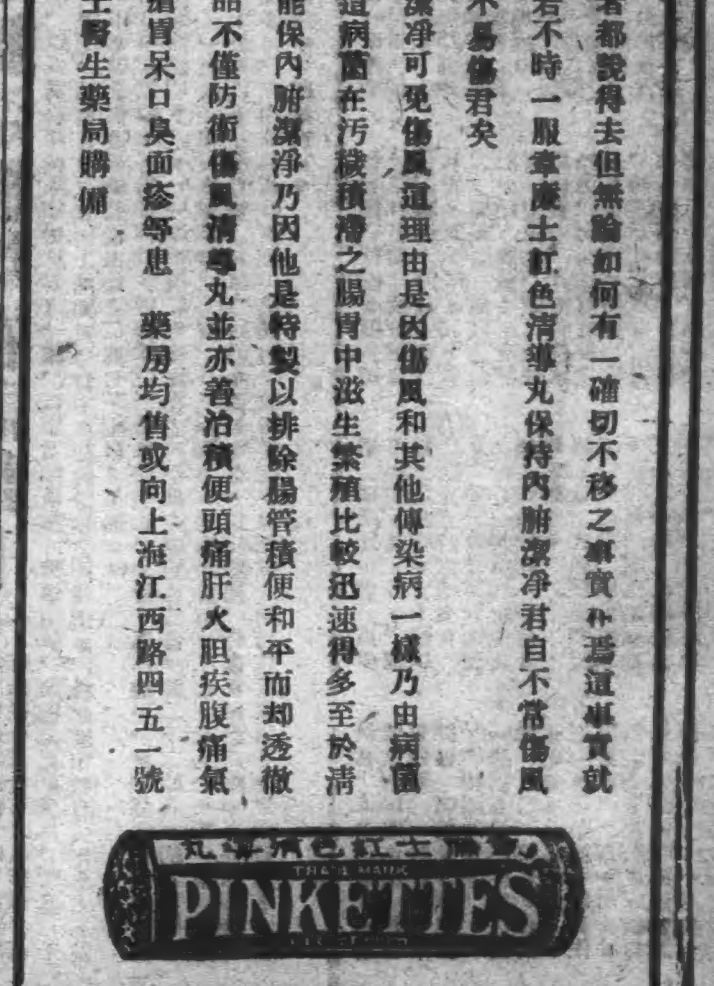 者都說得去但無論如何有一確切不移之事實在焉這事實就
若不時一服韋廉士紅色清導丸保持內腑潔凈君自不常傷風
不易傷君矣
潔凈可免傷風這理由是因傷風和其他傳染病一樣乃由病菌
這病菌在汚穢積滯之腸胃中滋生繁殖比較迅速得多至於淸
能保內腑潔淨乃因他是特製以排除腸管積便和平而却透徹
品不僅防衛傷風清導丸並亦善治積便頭痛肝火胆疾腹痛氣
胃呆口臭面疹等患 藥房均售或向上海江西路四五一號
士醫生藥局購備
丸導清色紅士廉韋
TRADE MARK
PINKETTES